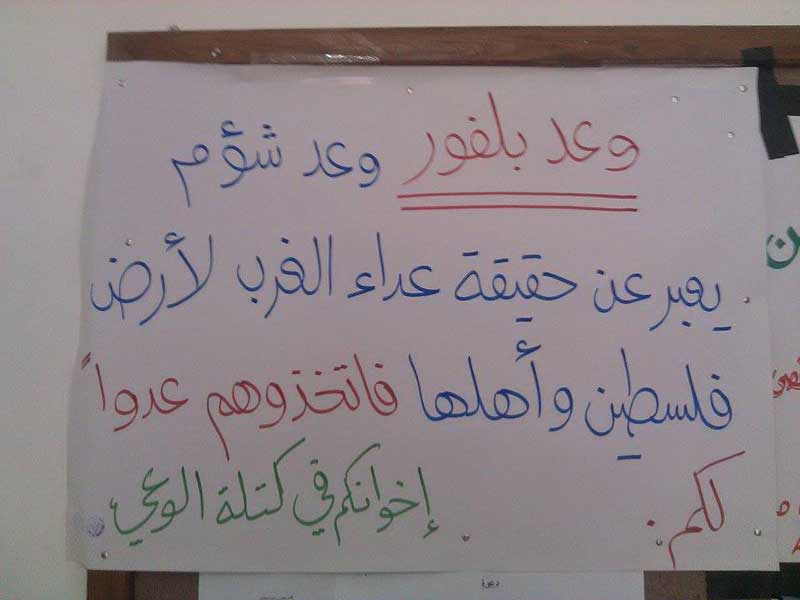 وعد بلفور وعد شؤم
يعبر عن حقيقة عداء الغرب لأرض
فلسطين وأهلها فاتخذوهم عدواً
لكم.
إخوانكم في كتلة الوعي